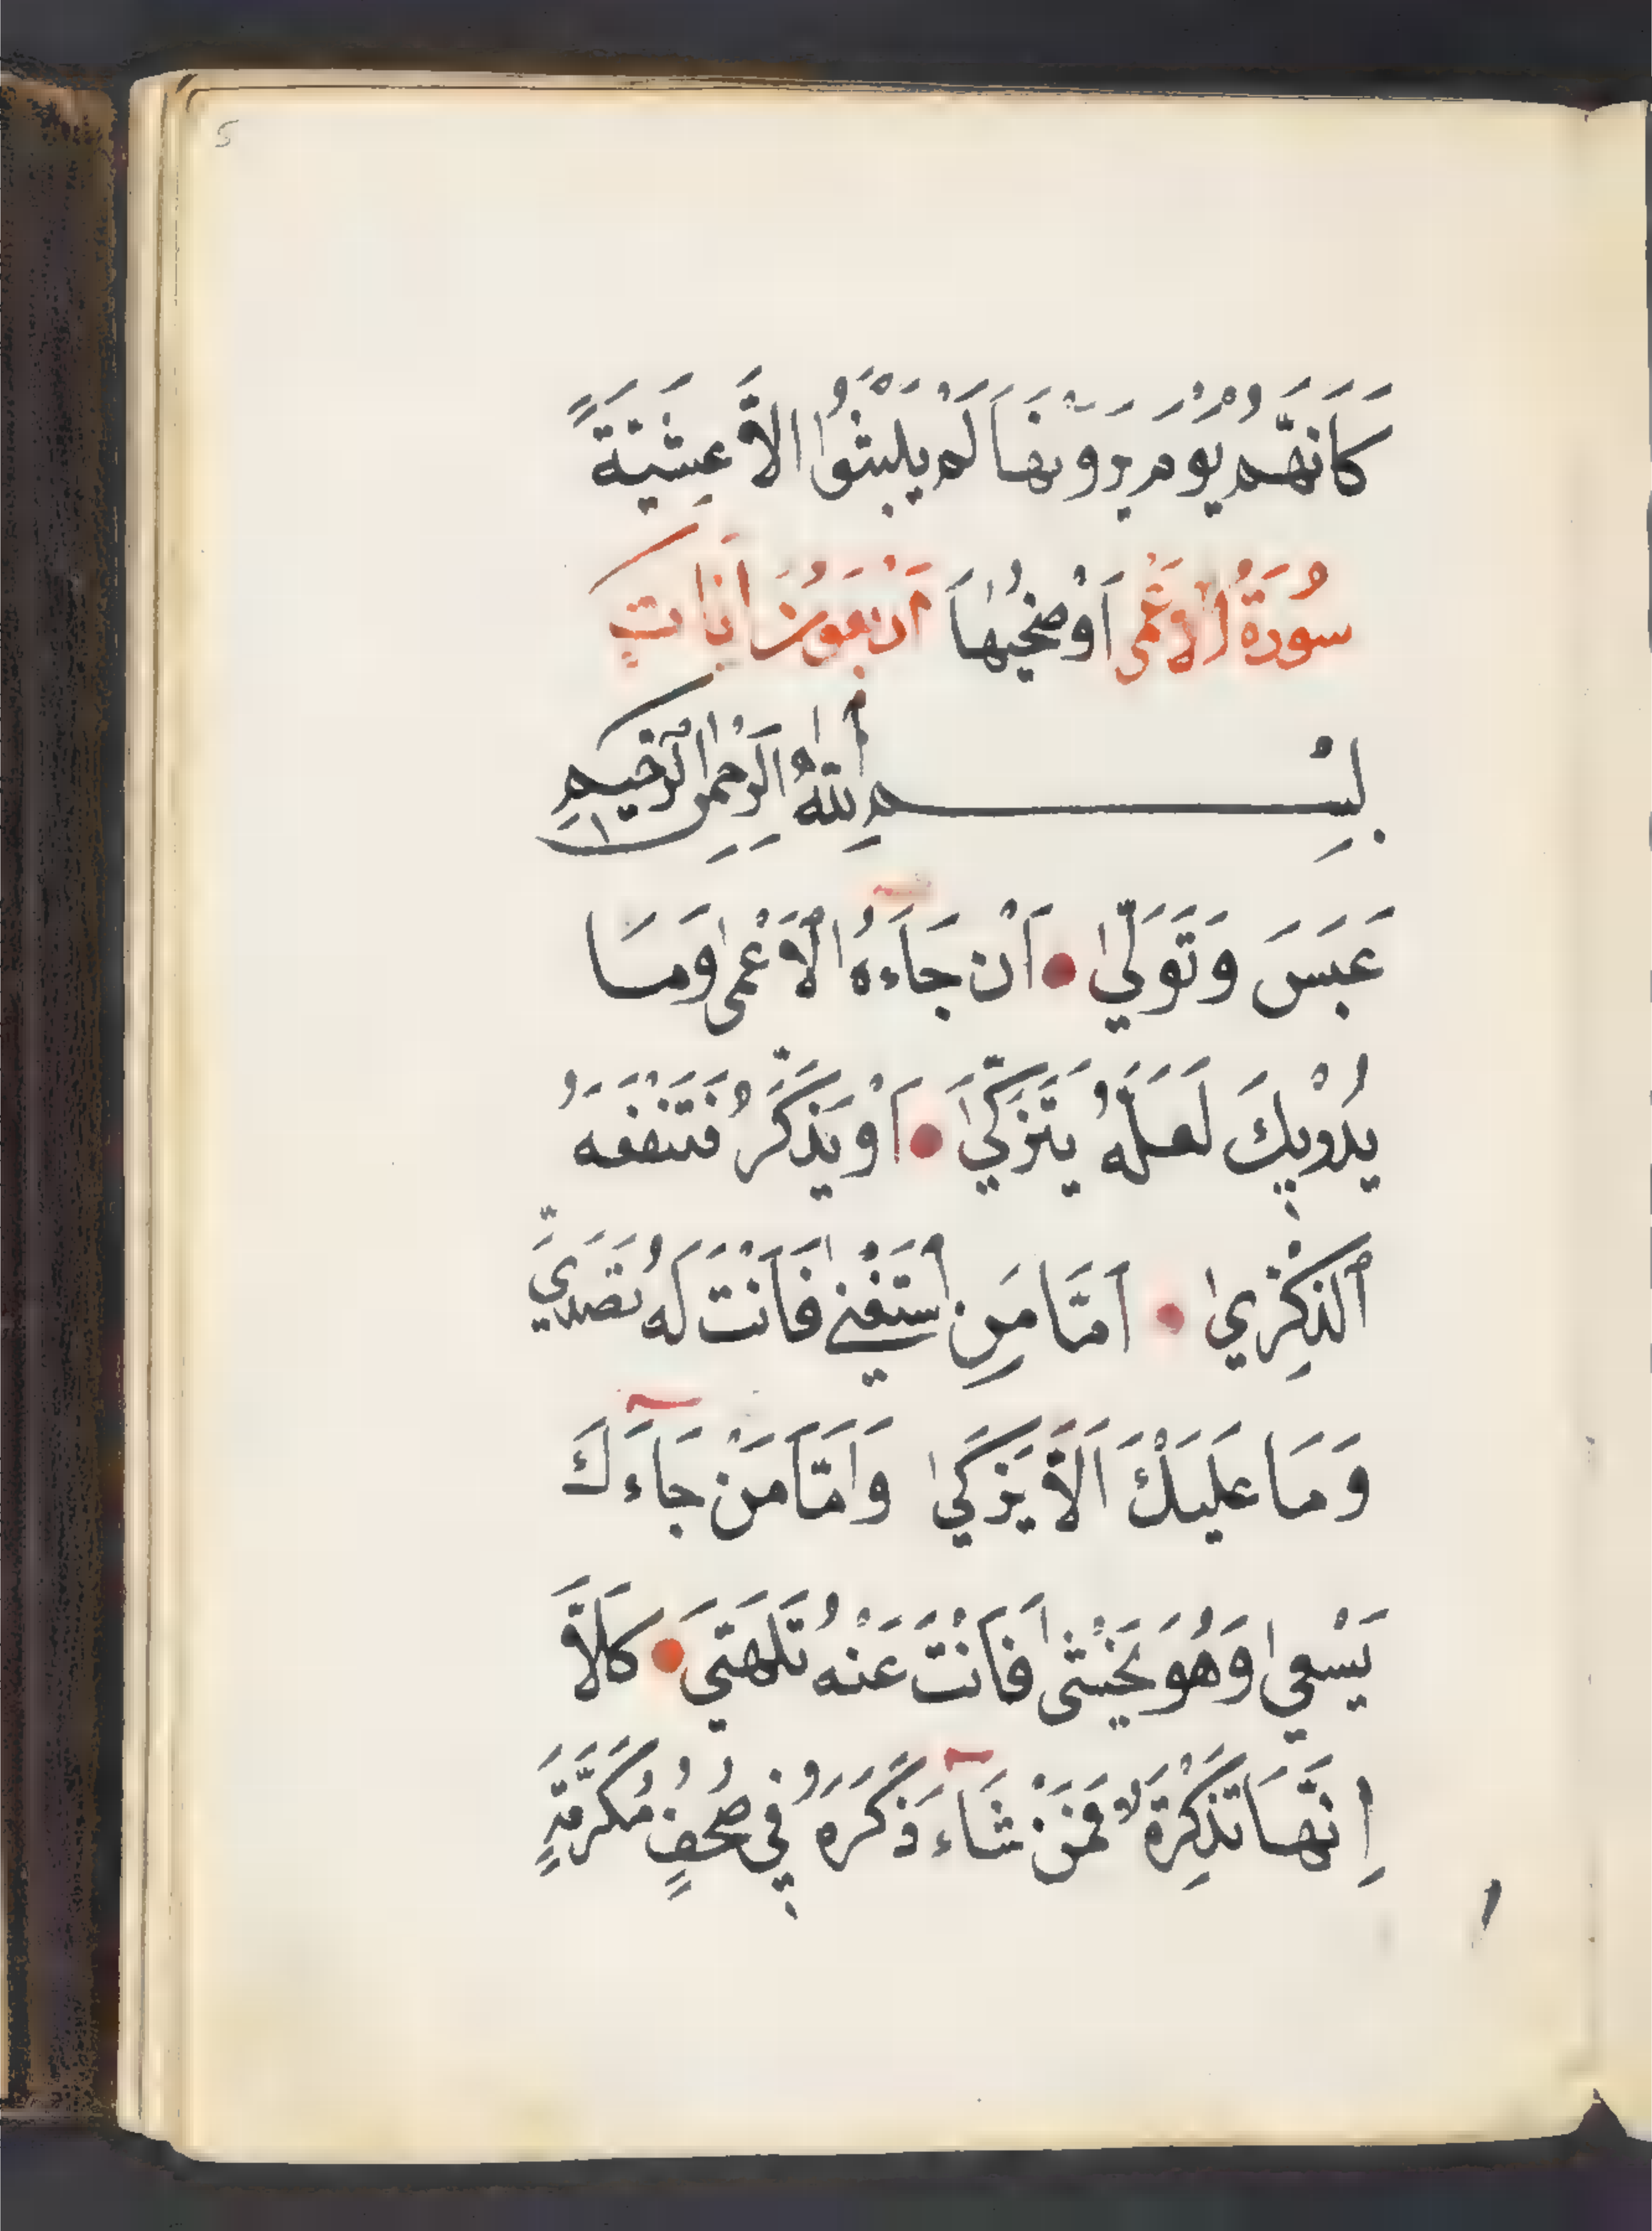 5
كَاَنَّهُمْ يَوْمَ يَرَوْنَهَا لَمْ يَلْبَثُوا اِلاَّ عَشِيَّةً
سُورَةُ الْاَعْمٰى اَوْ ضُحٰيهَا اَرْبَعُونَ اٰيَاتٍ
بِسْمِ اللّٰهِ الرَّحْمٰنِ الرَّحٖيمِ
عَبَسَ وَتَوَلّٰي • اَنْ جَاۤءَهُ الْاَعْمٰى وَمَا
يُدْرٖيكَ لَعَلَّهُ يَتَزَكّٰي • اَوْ يَذَّكَّرُ فَتَنْفَعَهُ
ٱلذِّكْرٰي • اَمَّا مَنِ ٱسْتَغْنٰي فَاَنْتَ لَهُ تَصَدّٰي
وَمَا عَلَيْكَ اَلاَّ يَزَّكّٰي وَاَمَّا مَنْ جَاۤءَكَ
يَسْعٰي وَهُوَ يَخْشٰى فَاَنْتَ عَنْهُ تَلَهّٰي • كَلاَّ
اِنَّهَا تَذْكِرَةٌ لا فَمَنْ شَاۤءَ ذَكَرَهُ فٖي صُحُفٍ مُكَرَّمَةٍ